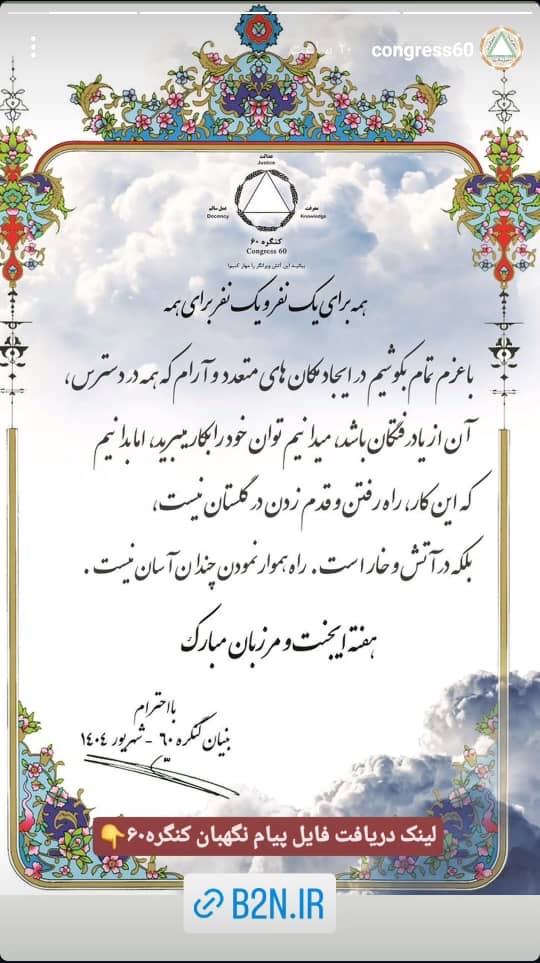 congress60 ۲۰ ساعت
عدالت
Justice
عمل سالم
معرفت
Decency
Knowledge
کنگره ۶۰
Congress 60
بیائید این آتش ویرانگر را مهار کنیم!
همه برای یک نفر و یک نفر برای همه
با عزم تمام بکوشیم در ایجاد مکان های متعدد و آرام که همه در دسترس،
آن از یاد رفتگان باشد، میدانیم توان خود را بکار میبرید، اما بدانیم
که این کار، راه رفتن و قدم زدن در گلستان نیست،
بلکه در آتش و خار است. راه هموار نمودن چندان آسان نیست.
هفته ایجنت و مرزبان مبارک
با احترام
بنیان کنگره ۶۰ - شهریور ۱۴۰۴
لینک دریافت فایل پیام نگهبان کنگره۶۰👇
B2N.IR